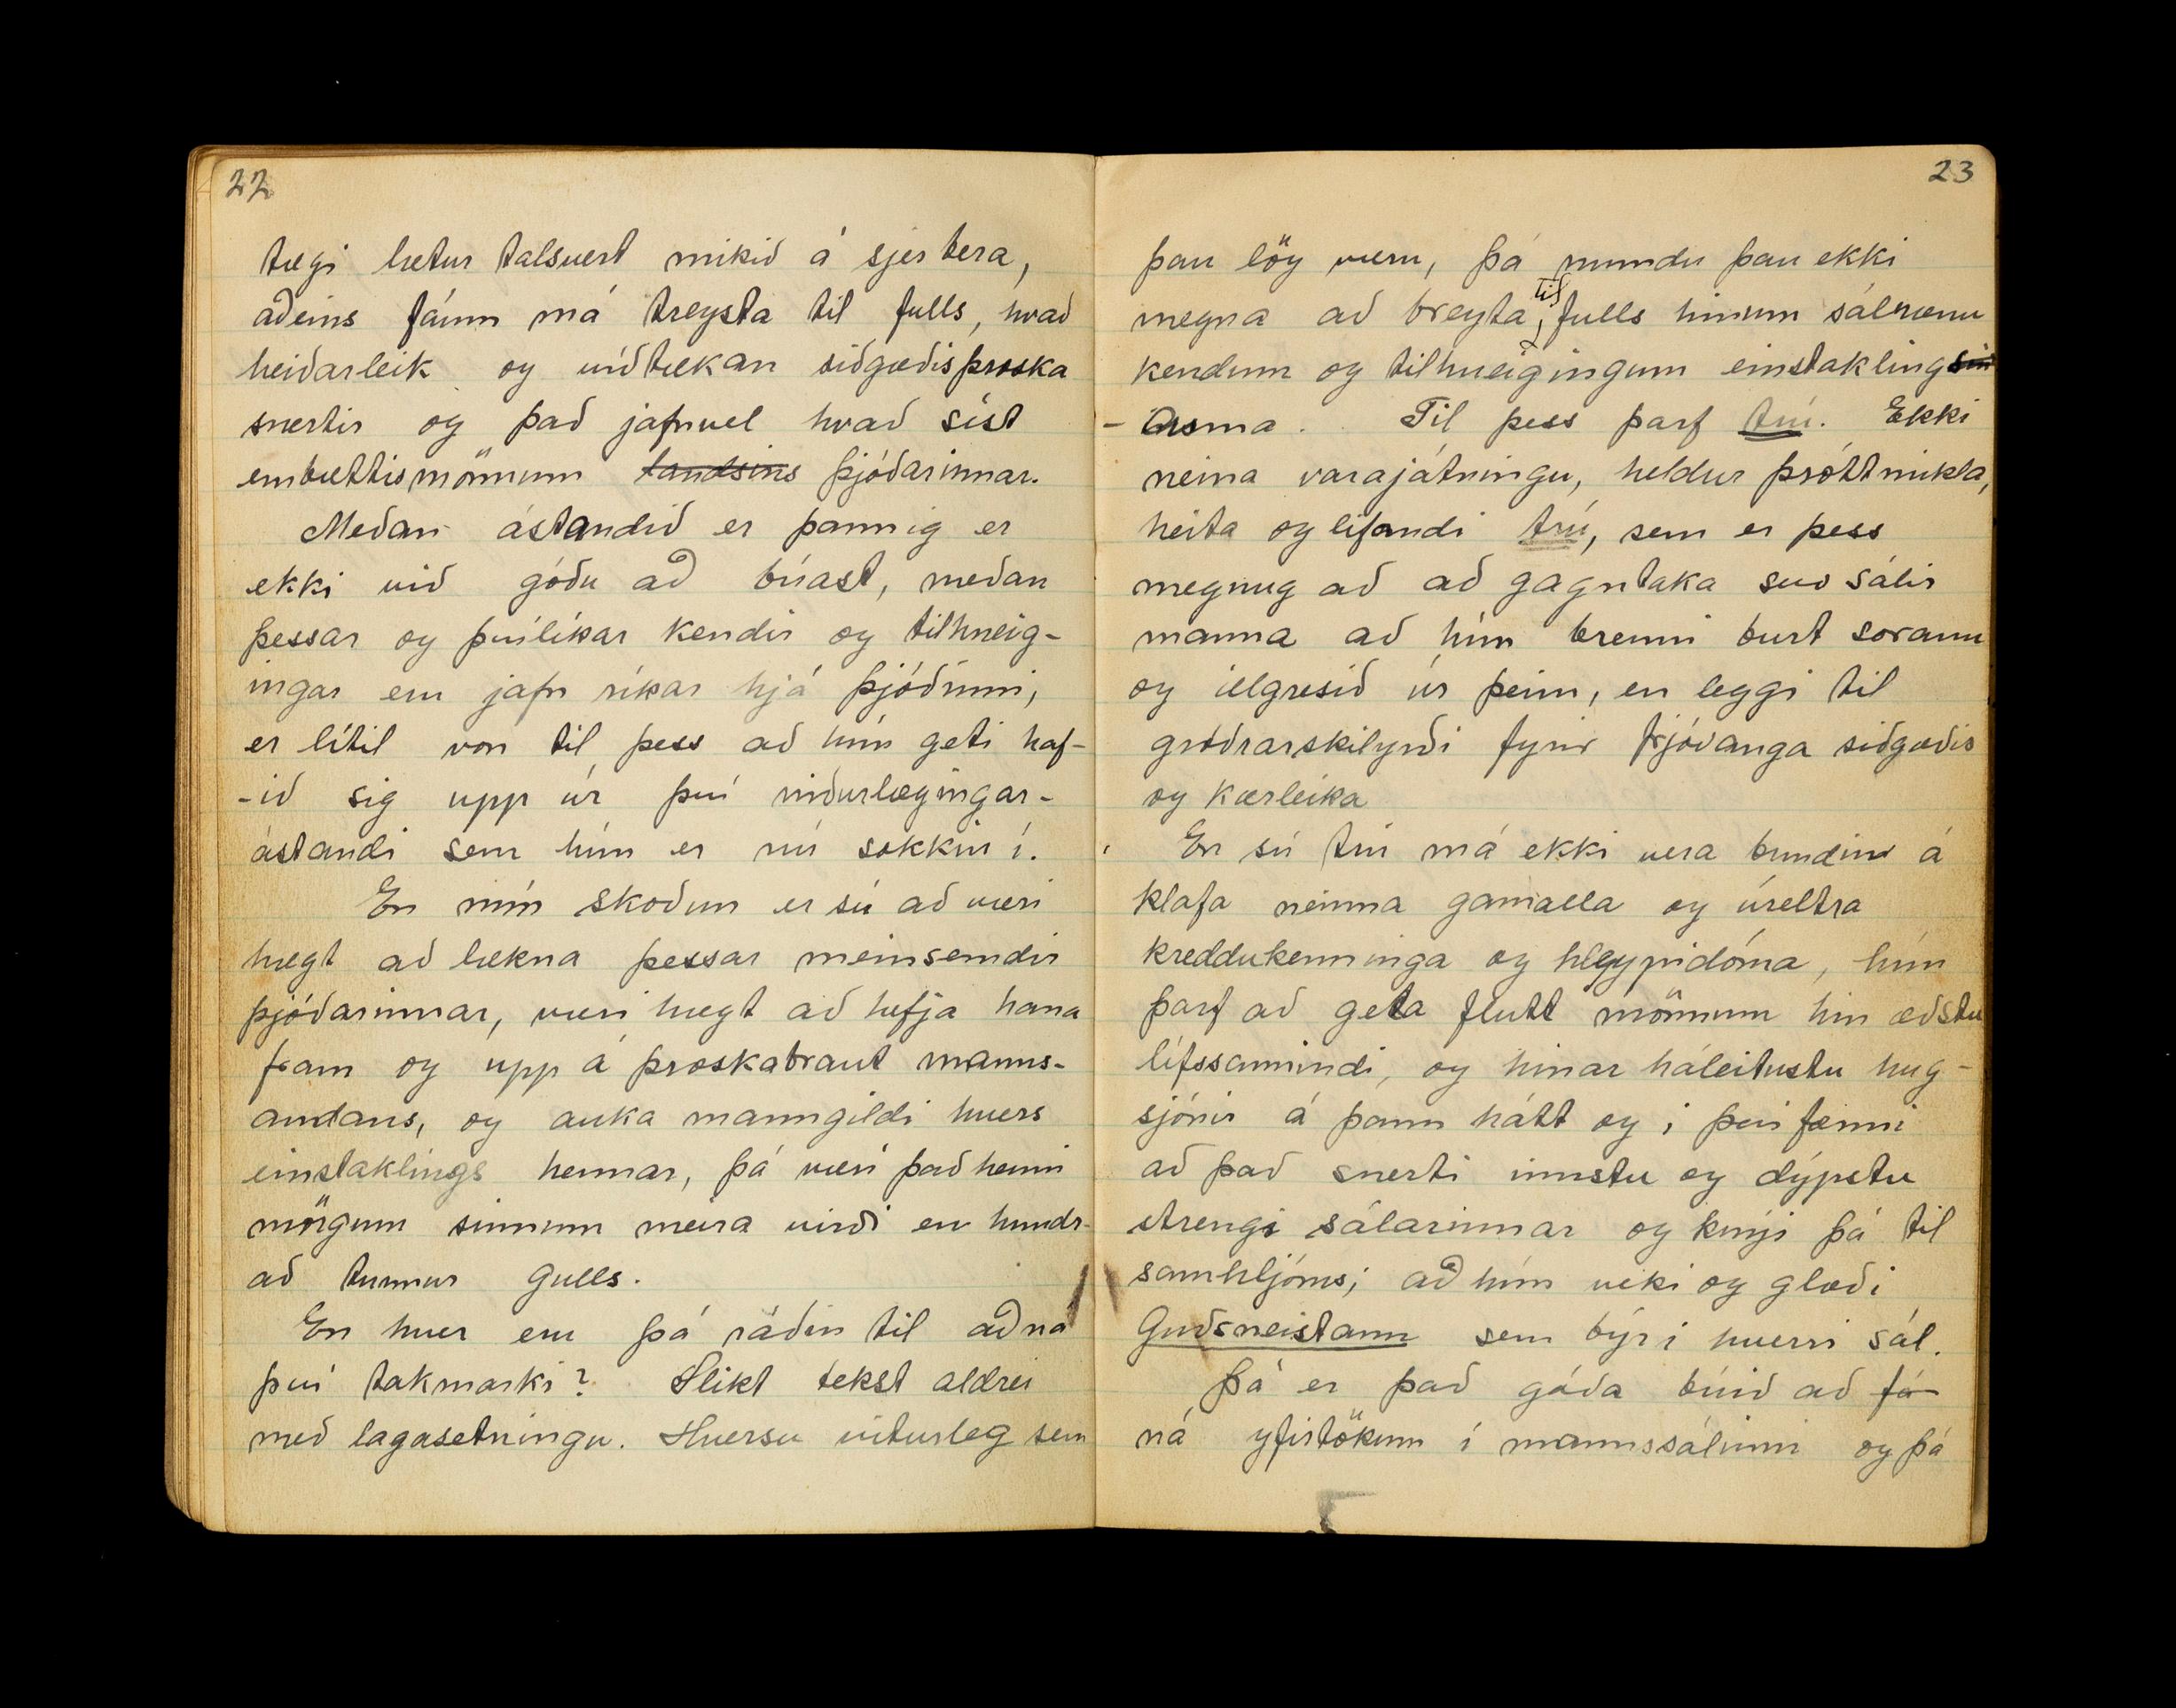 22
tægi lætur talsvert mikið á sjer bera,
aðeins fáum má treysta til fulls, hvað
heiðarleik og víðtækan siðgæðisþroska
snertir og það jafnvel hvað síst
embættismönnum landsins þjóðarinnar.
Meðan ástandið er þannig er
ekki við góðu að búast, meðan
þessar og þvílíkar kendir og tilhneig-
ingar eru jafn ríkar hjá þjóðinni,
er lítil von til þess að hún geti haf-
-ið sig upp úr því niðurlægingar-
ástandi sem hún er nú sokkin í.
En mín skoðun er sú að væri
hægt að lækna þessar meinsemdir
þjóðarinnar, væri hægt að hefja hana
fram og upp á þroskabraut manns-
andans, og auka manngildi hvers
einstaklings hennar, þá væri það henni
mörgum sinnum meira virði en hundr-
að tunnur gulls.
En hver eru þá ráðin til að ná
því takmarki? Slíkt tekst aldrei
með lagasetningu. Hversu viturleg sem
23
þau lög væru, þá mundu þau ekki
megna að breyta til fulls hinum sálrænu
kendum og tilhneigingum einstaklingsin
-anna. Til þess þarf trú. Ekki
neina varajátningu, heldur þróttmikla,
heita og lifandi trú, sem er þess
megnug að að gagntaka svo sálir
manna að hún brenni burt sorann
og illgresið úr þeim, en leggi til
gróðrarskilyrði fyrir frjóvanga siðgæðis
og kærleika
En sú trú má ekki vera bundin á
klafa neinna gamalla og úreltra
kreddukenninga og hleypidóma, hún
þarf að geta flutt mönnum hin æðstu
lífssannindi, og hinar háleitustu hug-
sjónir á þann hátt og í því formi
að það snerti innstu og dýpstu
strengi sálarinnar og knýi þá til
samhljóms; að hún veki og glæði
Guðsneistann sem býr í hverri sál.
Þá er það góða búið að fá
ná yfirtökum í mannssálinni og þá